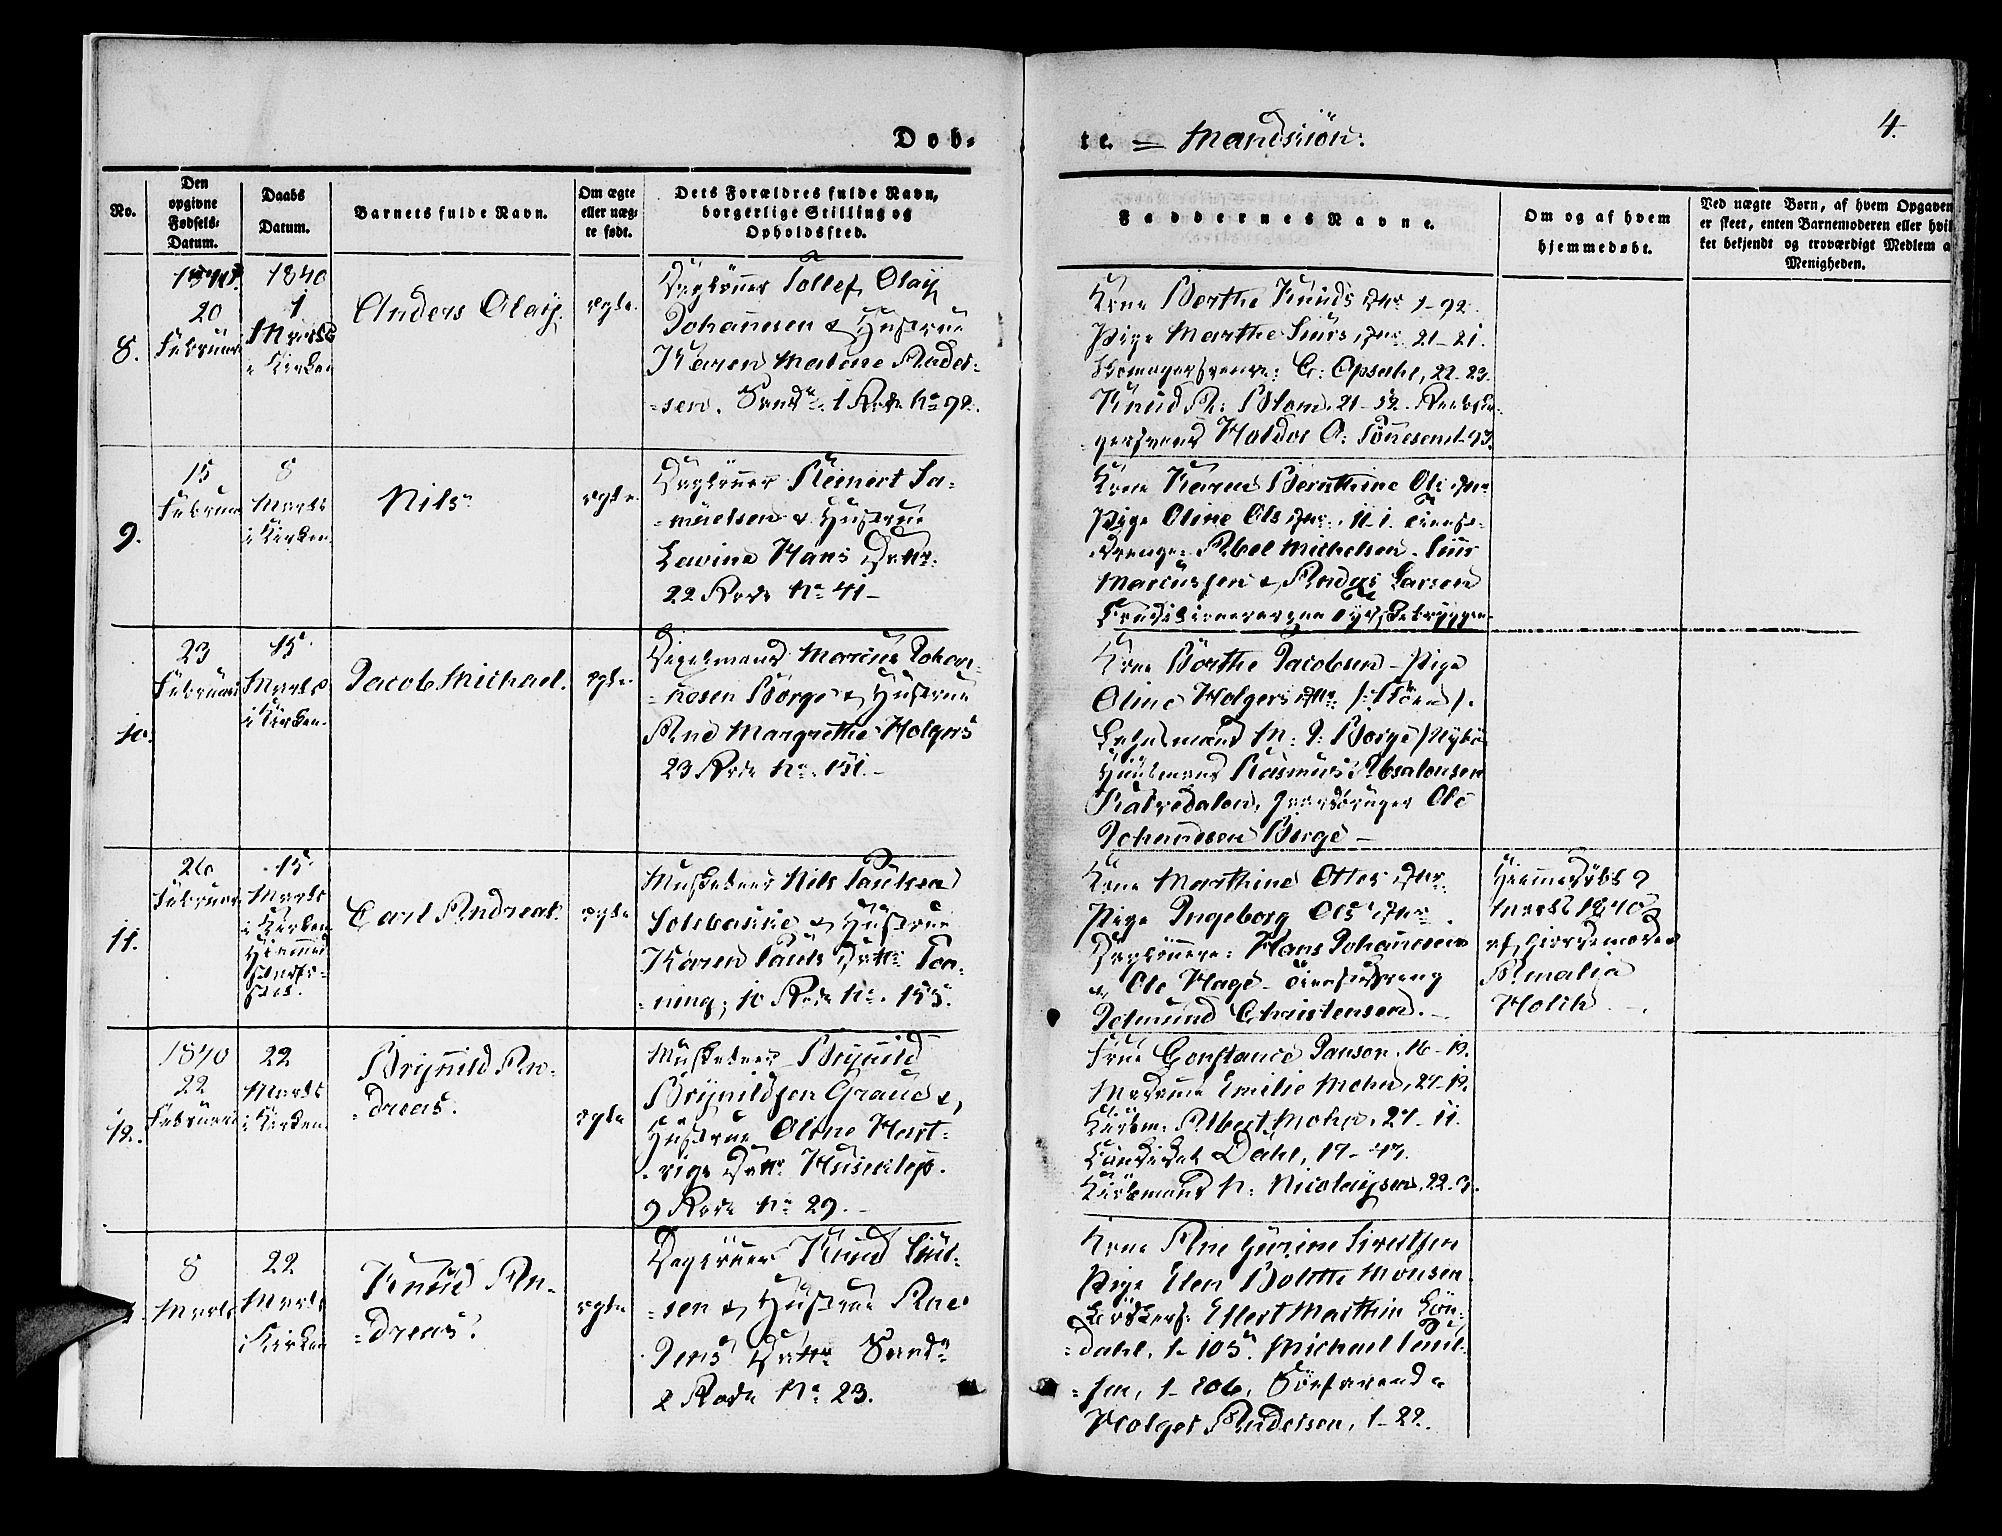 Døb-
te. = Mandkiön.
4.
No.
Den
opgivne
Fødsels-
Datum.
Daabs
Datum.
Barnets fulde Navn.
Om ægte
eller uæg-
te født.
Dets Forældres fulde Navn,
borgerlige Stilling og
Opholdssted.
Faddernes Navne.
Om og af hvem
hjemmedøbt.
Ved uægte Børn, af hvem Opgaven
er skeet, enten Barnemoderen eller hvil
ket bekjendt og troværdigt Medlem a
Menigheden.
8.
20
Februar
1840
1
Marts
i Kirken
Anders Olaij.
ægte.
Daglönner Tollef Olaij
Johannesen & Hustrue
Karen Malene Ander-
-sen. 1 Rode No 92.
Kone Berthe Knuds Dttr 1-92.
Pige Marthe Siurs Dttr. 21-21.
Skomagersvende: C: Opsahl, 22-23.
Knud A: Blom, 21-52. Rebsla-
gersvend Haldor O: Tönesen 1-93.
9.
15
Februar
8
Marts
i Kirken
Nils.
ægte.
Daglönner Reinert Sa-
-muelsen & Hustrue
Lavine Hans Dattr.
22 Rode No 41-
Kone Karen Bernthine Ols Dttr
Pige Oline Ols Dttr. Tieneste-
Drenge: Abel Michelsen. Siur
Mariussen & Anders Larsen
10.
23
Februar
15
Marts
i Kirken.
Jacob Michael.
ægte
Marcus Johan-
-nesen Borge & Hustrue
Ane Margrethe Holgers
23 Rode No. 151.-
Kone Börthe Jacobsen - Pige
Oline Holgers Dttr.
M: J: Borge
Huusmand Rasmus Absalonsen
Kalvedalen, Gaardbruger Ole
Johannesen Borge -
11.
26
Februar
15
Marts
i Kirken
Carl Andreas.
ægte
Musketeer Nils Paulsen
Solebakke & Hustrue
Karen Pauls Dattr
10 Rode No. 155.
Kone Marthine Ottes Dttr.
Pige Ingeborg Ols Dttr.
Daglönnere: Hans Johannesen
& Ole Hage - Tienestedreng
Edmund Christensen.-
Hiemmedöbt 9
Marts 1840
af Giordemoder
Amalia
Holth
12.
1840
22
Februar
22
Marts
i Kirken.
Brynnild An-
-dreas.
ægte
Musketeer Brynild
Brynildsen Graue &
Hustrue Oline Hart-
-vigs Dattr
9 Rode No 29.-
Frue Constance Janson, 16-19.
Madame Emilie Mohn, 24-19.
Kiöbm. Albert Mohn, 24-11.
Candidat Dahl, 17-47.
Kiöbmand N: Nicolaysen, 22-3.
8
Marts
22
Marts
i Kirken
Knud An-
-dreas.
ægte
Daglönner Knud
-sen & Hustrue Ane
Jens Dattr
2 Rode No 23.
Kone Ane Gurine Sivertsen
Pige Elen Bolette Monsen
Eilert Marthin Lön-
-dahl, 1-105. Michael Paul-
-sen, 1-206. Söefarende
Holger Andersen, 1-22.